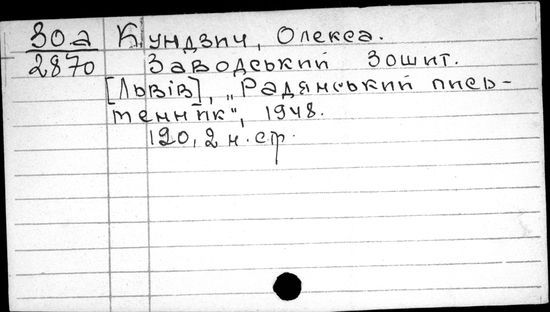 30a Кундзич, Олекса.
2870 Заводський зошит.
[Львів], „Радянський пись-
менник“, 1948.
120, 2 н. стр.